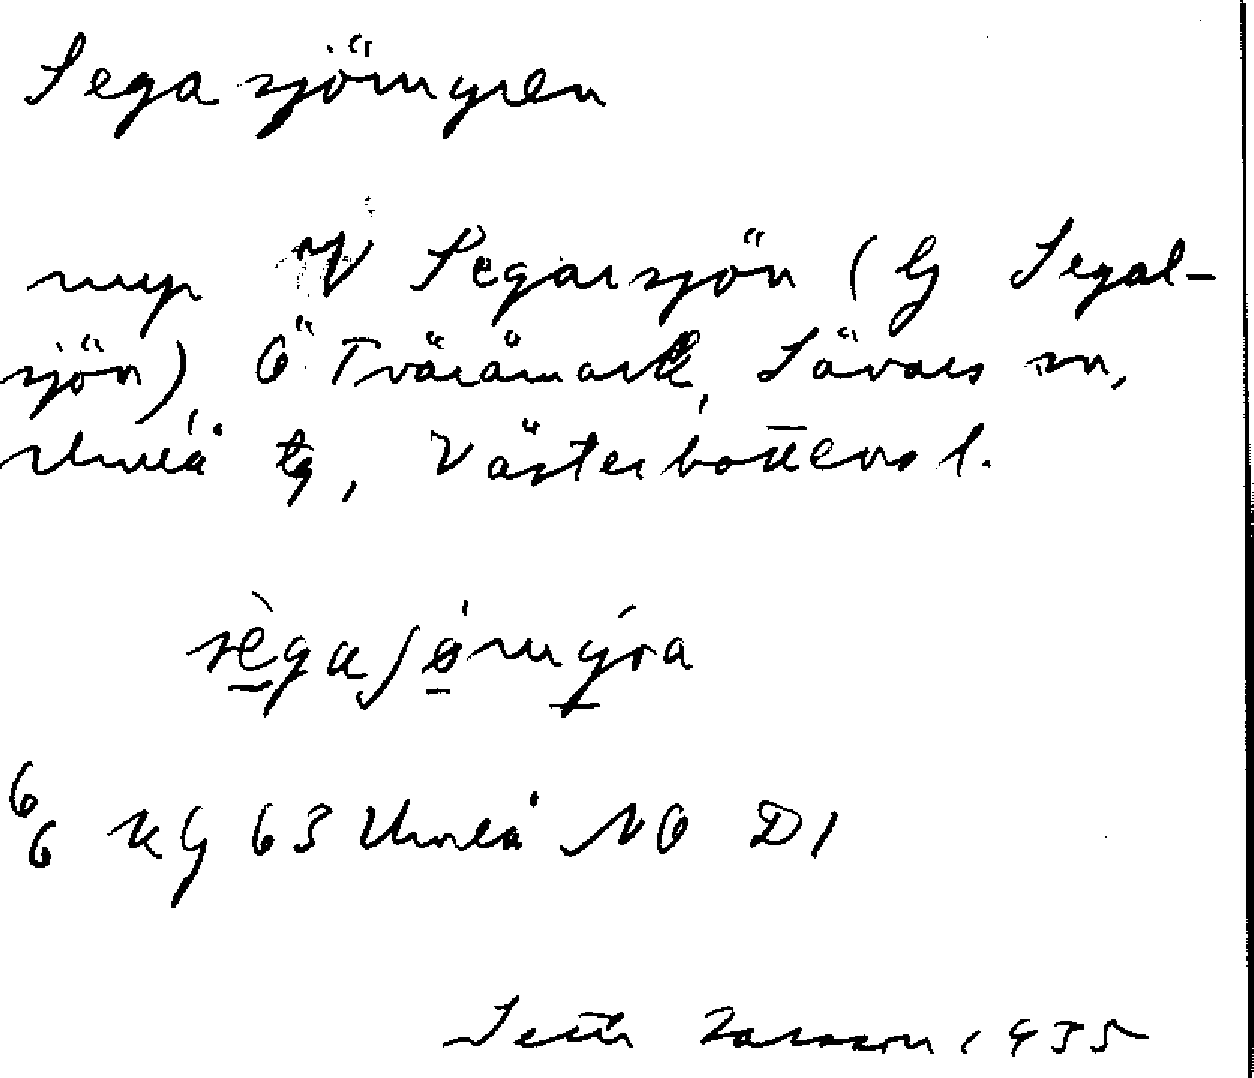 Segasjömyren
myr V Segarsjön (G Segal-
sjön), Ö Tväråmark, Sävars sn,
Umeå tg, Västerbottens l.
sègaʃømýra
6/6 KG 63 Umeå NO D1
Seth Larsson 1935